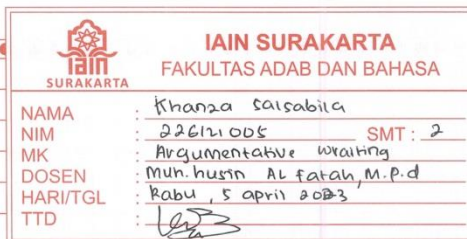 IAIN SURAKARTA
FAKULTAS ADAB DAN BAHASA
iain
SURAKARTA
NAMA : Khanza Salsabila
NIM : 226121005 SMT : 2
MK : Argumentative Wraiting
DOSEN : Muh. husin AL fatah, M.p.d
HARI/TGL : Rabu, 5 april 2023
TTD :